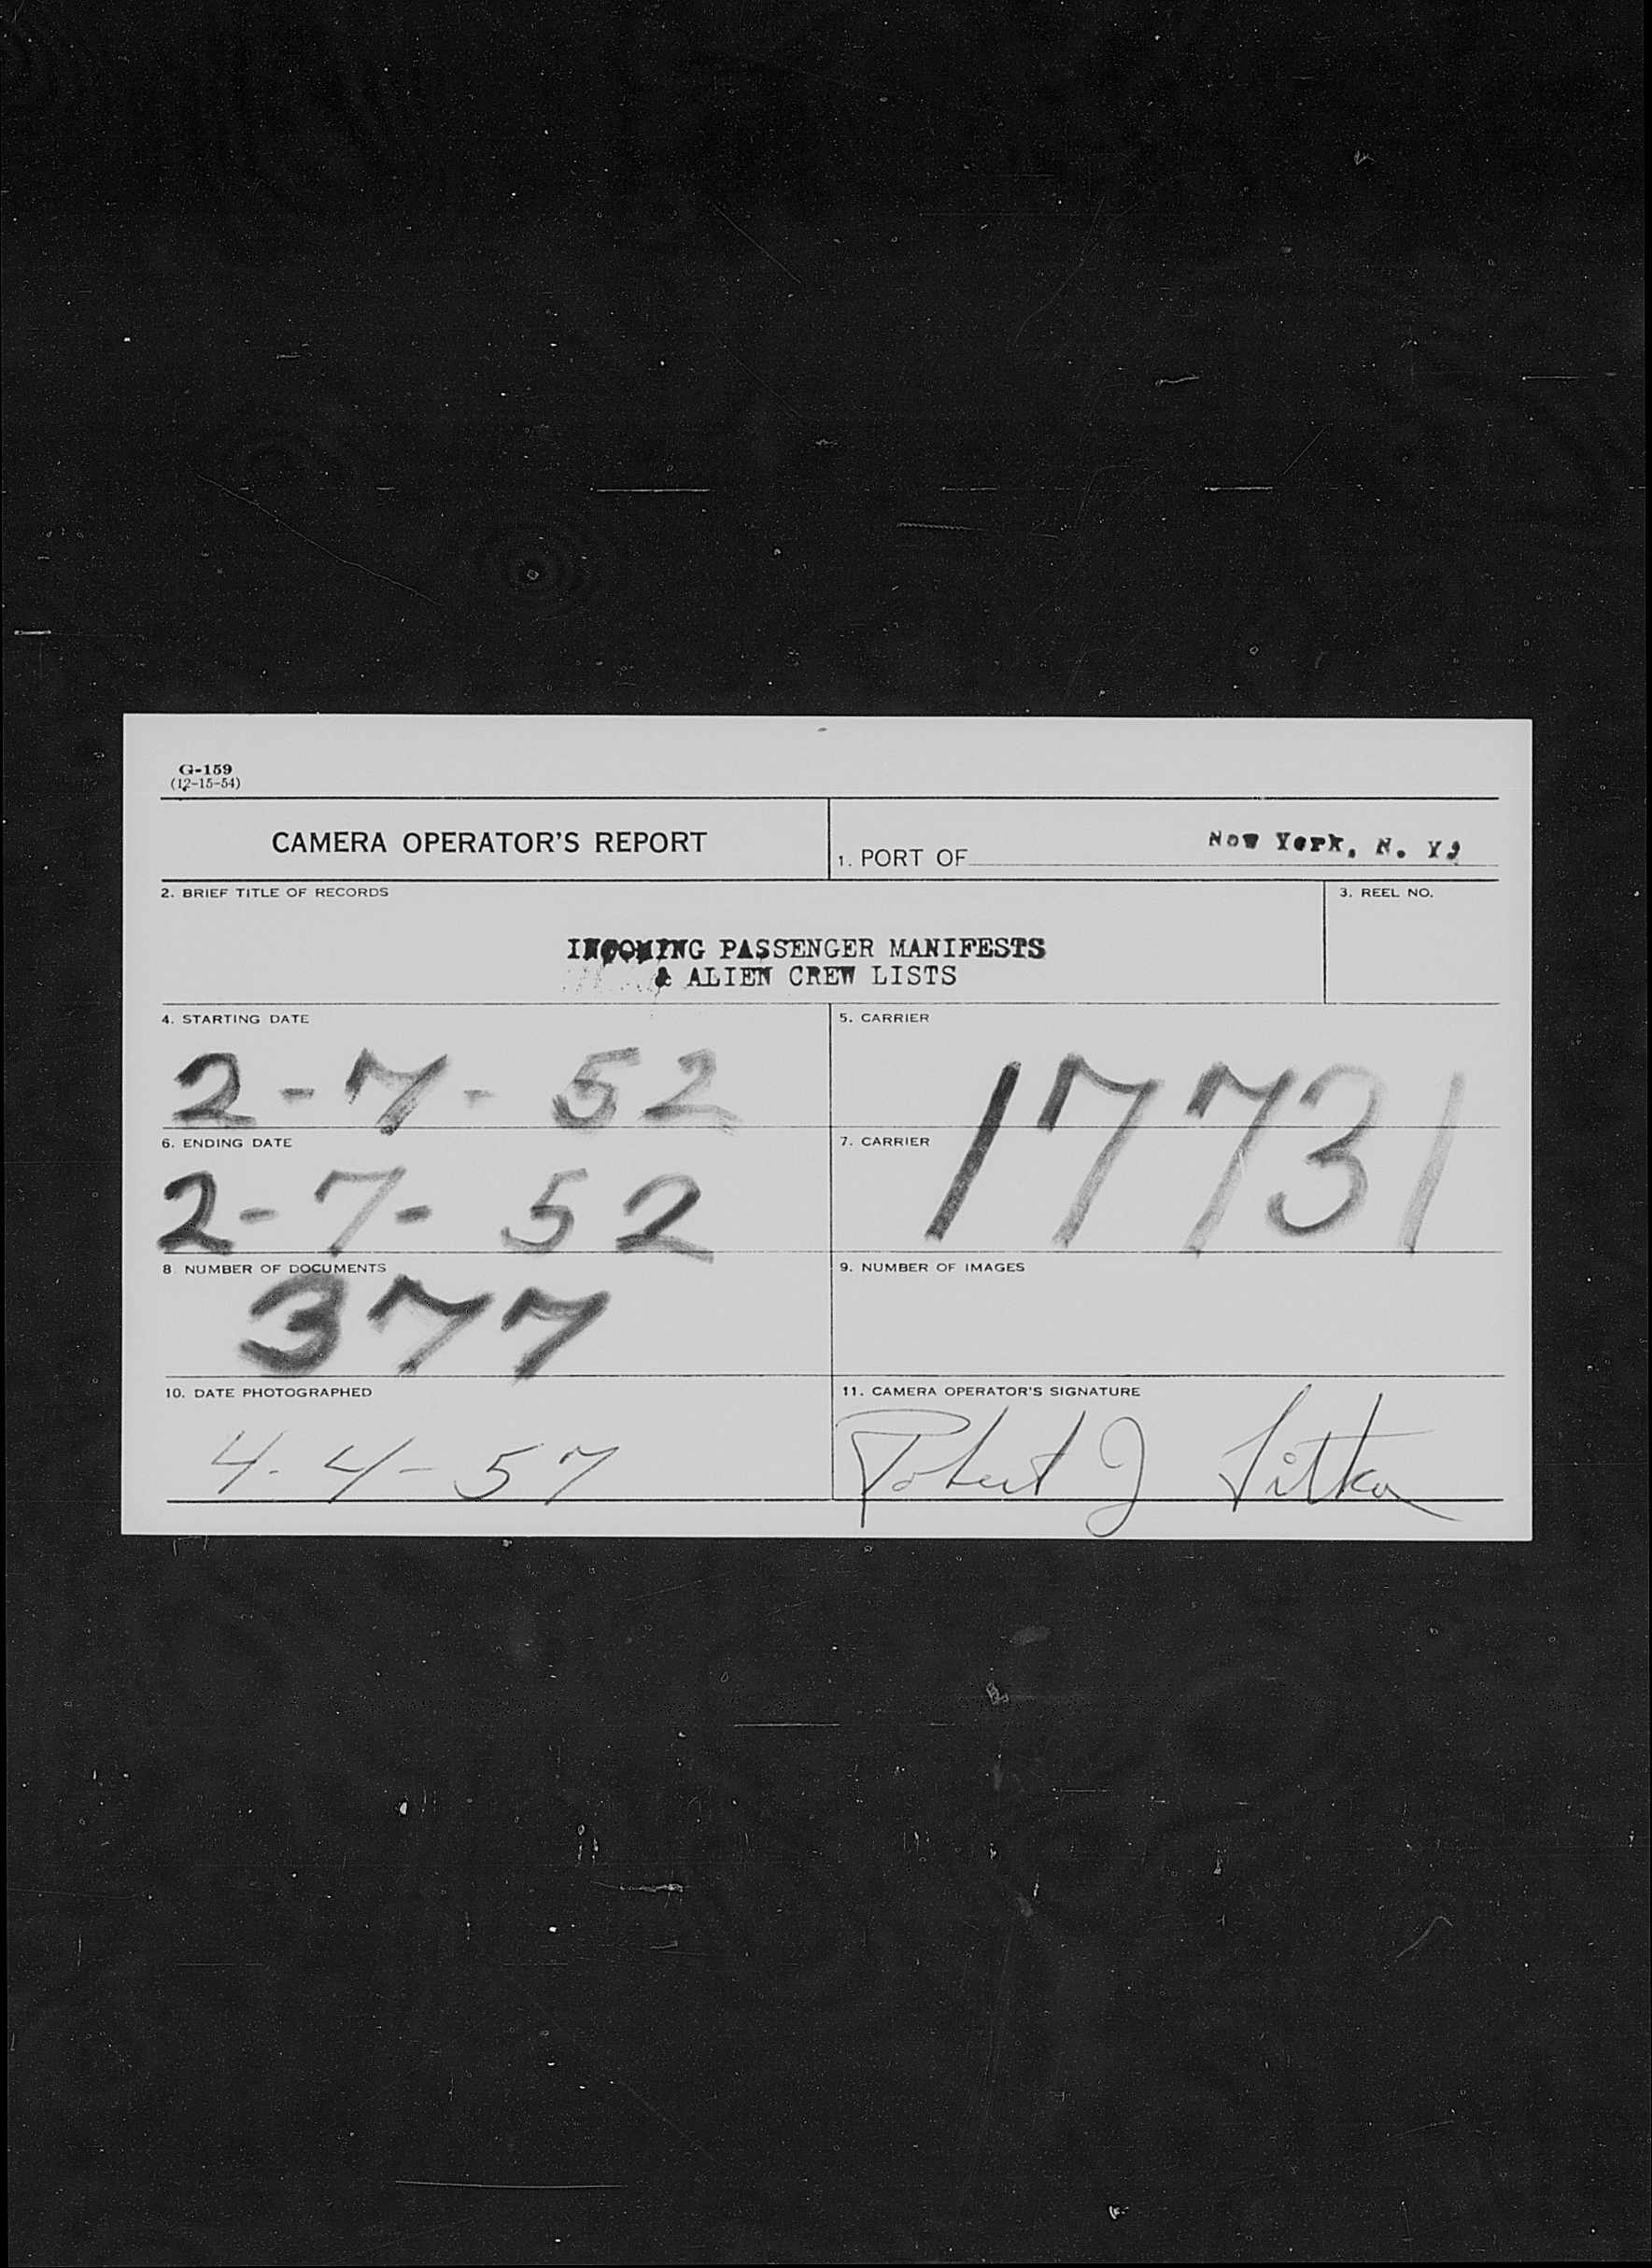 G-159
(12-15-54)
CAMERA OPERATOR'S REPORT
1. PORT OF New York, N. Y.
2. BRIEF TITLE OF RECORDS
3. REEL NO.
INCOMING PASSENGER MANIFESTS
& ALIEN CREW LISTS
4. STARTING DATE
2-7-52
5. CARRIER
17731
6. ENDING DATE
2-7-52
7. CARRIER
8. NUMBER OF DOCUMENTS
377
9. NUMBER OF IMAGES
10. DATE PHOTOGRAPHED
4-4-57
11. CAMERA OPERATOR'S SIGNATURE
Robert J